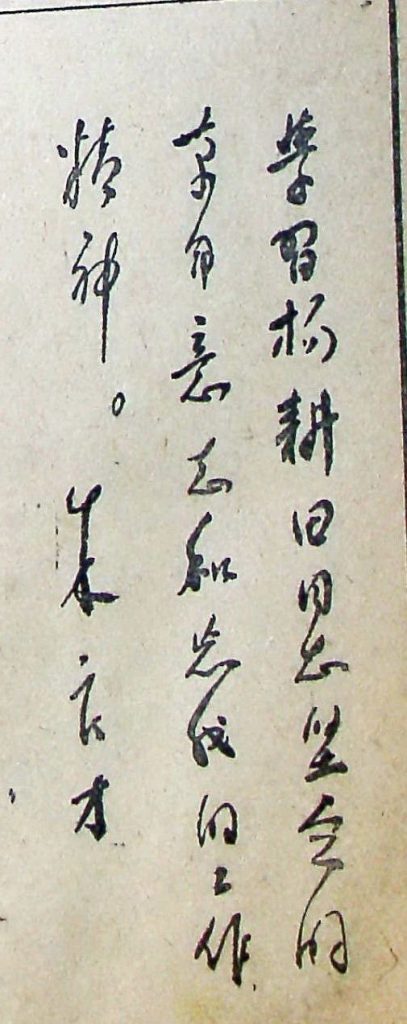 學習楊耕田同志坚定的
革命意志和忘我的工作
精神。朱良才